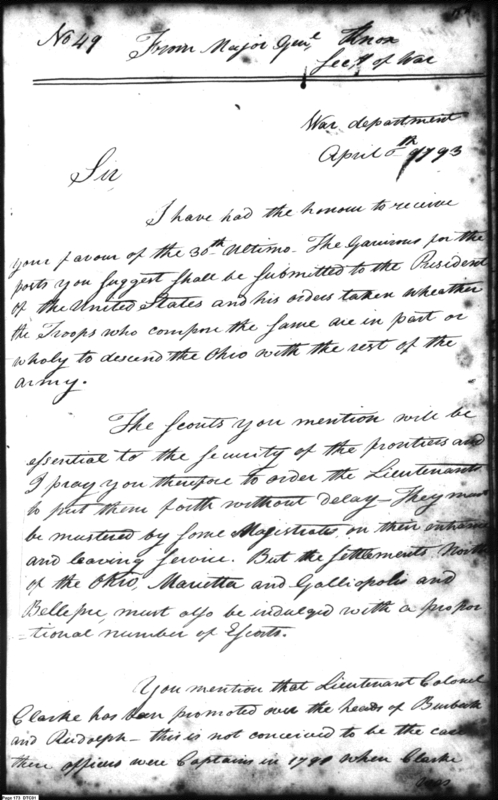 No 49 From Major Genl Knox
Secy of War
War department
April 1793
Sir,
I have had the honour to receive
your favour of the 30th Ultimo. The Garrisons for the
posts you suggest shall be submitted to the President
of the United States and his orders taken wheather
the Troops who compose the same are in part or
wholy to descend the Ohio with the rest of the
army.
The Scouts you mention will be
essential to the security of the frontiers and
I pray you therefore to order the Lieutenants
to put them forth without delay – They must
be mustered by some Magistrates, on their entrance
and leaving service. But the settlements North
of the Ohio, Marietta and Galliopolis and
Bellepre, must also be indulged with a propor
-tional number of Escorts.
You mention that Lieutenant Colonel
Clarke has been promoted over the heads of Burbeck
and Rudolph – this is not conceived to be the case
these officers were Captains in 1790 when Clarke
was
Page 173 DTC01